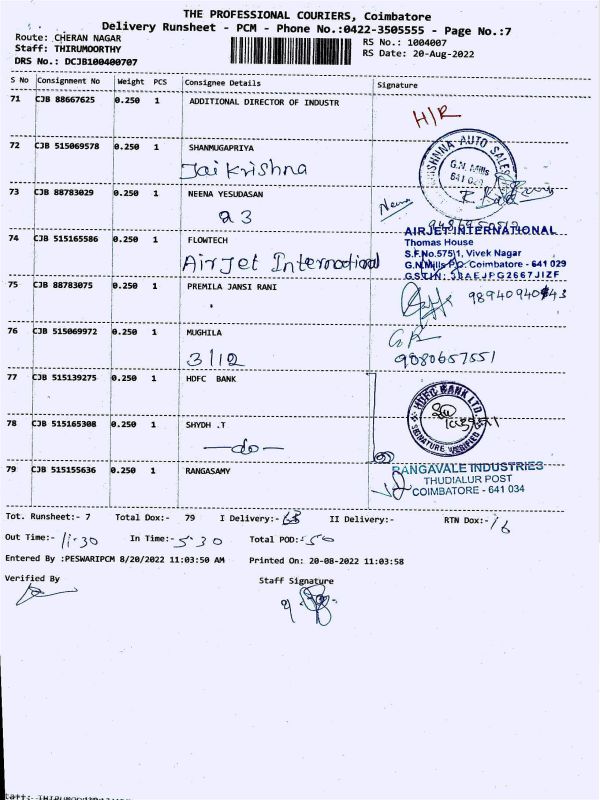 THE PROFESSIONAL COURIERS, Coimbatore
Delivery Runsheet - PCM - Phone No.:0422-3505555 - Page No.:7
Route: CHERAN NAGAR
RS No.: 1004007
Staff: THIRUMOORTHY
RS Date: 20-Aug-2022
DRS No.: DCJB100400707
S No Consignment No Weight PCS Consignee Details Signature
71 CJB 88667625 0.250 1 ADDITIONAL DIRECTOR OF INDUSTR
H/R
72 CJB 515069578 0.250 1 SHANMUGAPRIYA
Jai Krishna
KRISHNNA AUTO SALES
G.N. Mills
641 029
73 CJB 88783029 0.250 1 NEENA YESUDASAN
23
74 CJB 515165586 0.250 1 FLOWTECH
Airjet International
AIRJET INTERNATIONAL
Thomas House
S.F.No.575/1, Vivek Nagar
G.N.Mills Po. Coimbatore - 641 029
75 CJB 88783075 0.250 1 PREMILA JANSI RANI
76 CJB 515069972 0.250 1 MUGHILA
3/12
9080657551
77 CJB 515139275 0.250 1 HDFC BANK
HDFC BANK LTD.
SIGNATURE VERIFIED
78 CJB 515165308 0.250 1 SHYDH .T
—do—
79 CJB 515155636 0.250 1 RANGASAMY
RANGAVALE INDUSTRIES
THUDIALUR POST
COIMBATORE - 641 034
Tot. Runsheet:- 7 Total Dox:- 79 I Delivery:- 63 II Delivery:- RTN Dox:- 16
Out Time:- 11-30 In Time:- 5-30 Total POD:- 50
Entered By :PESWARIPCM 8/20/2022 11:03:50 AM Printed On: 20-08-2022 11:03:58
Verified By Staff Signature